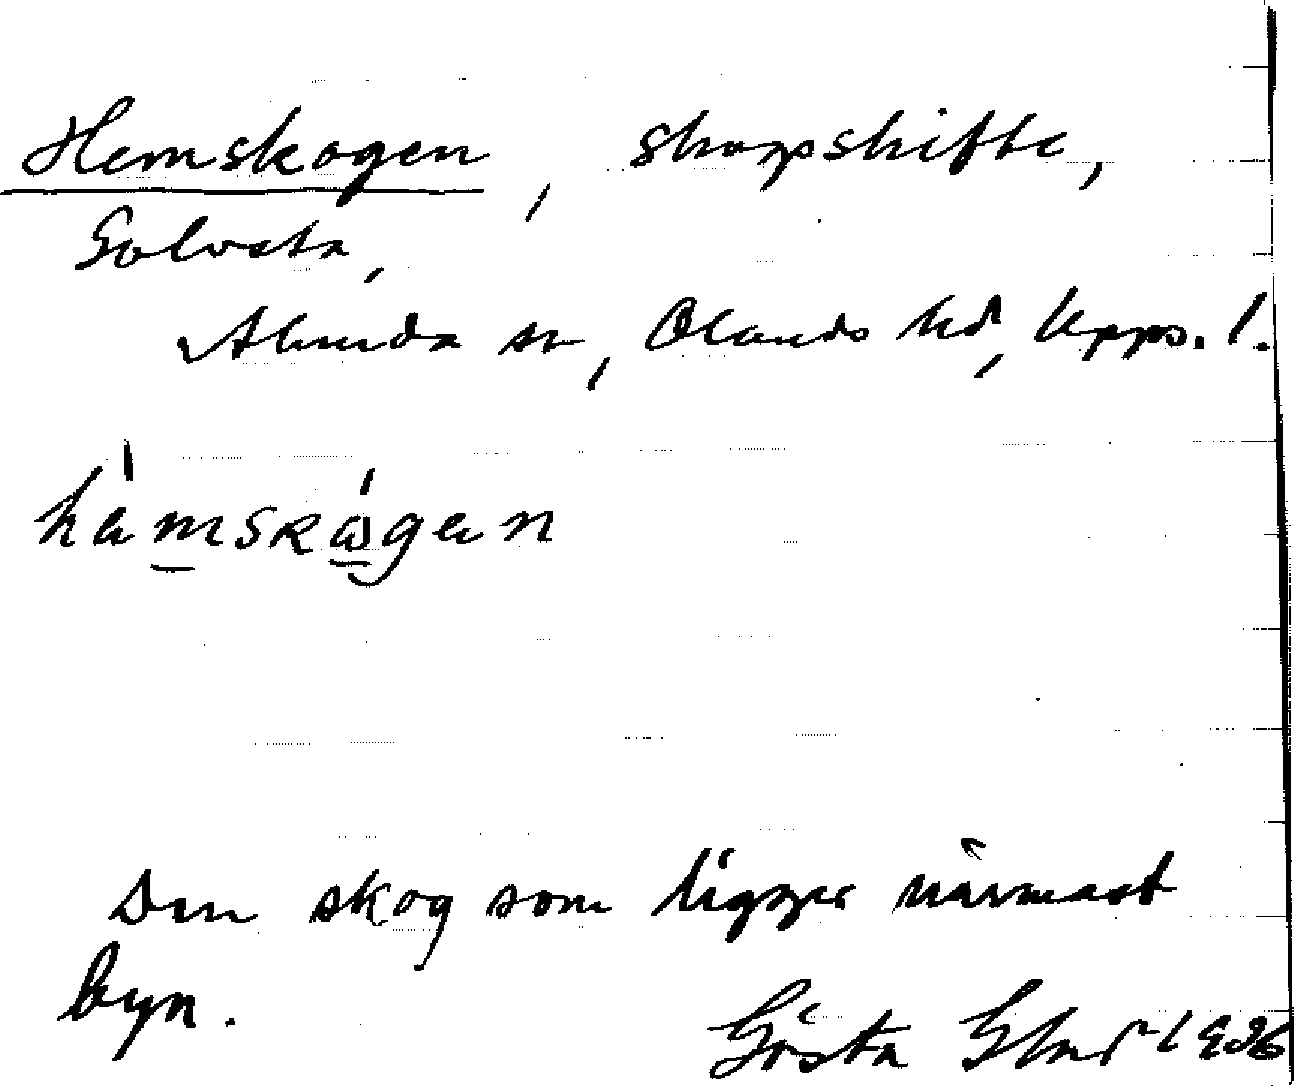 Hemskogen, skogsskifte,
Golvsta,
Alunda sn, Olands hd, Upps. l.
Den skog som ligger närmast
byn.
Gösta 1936